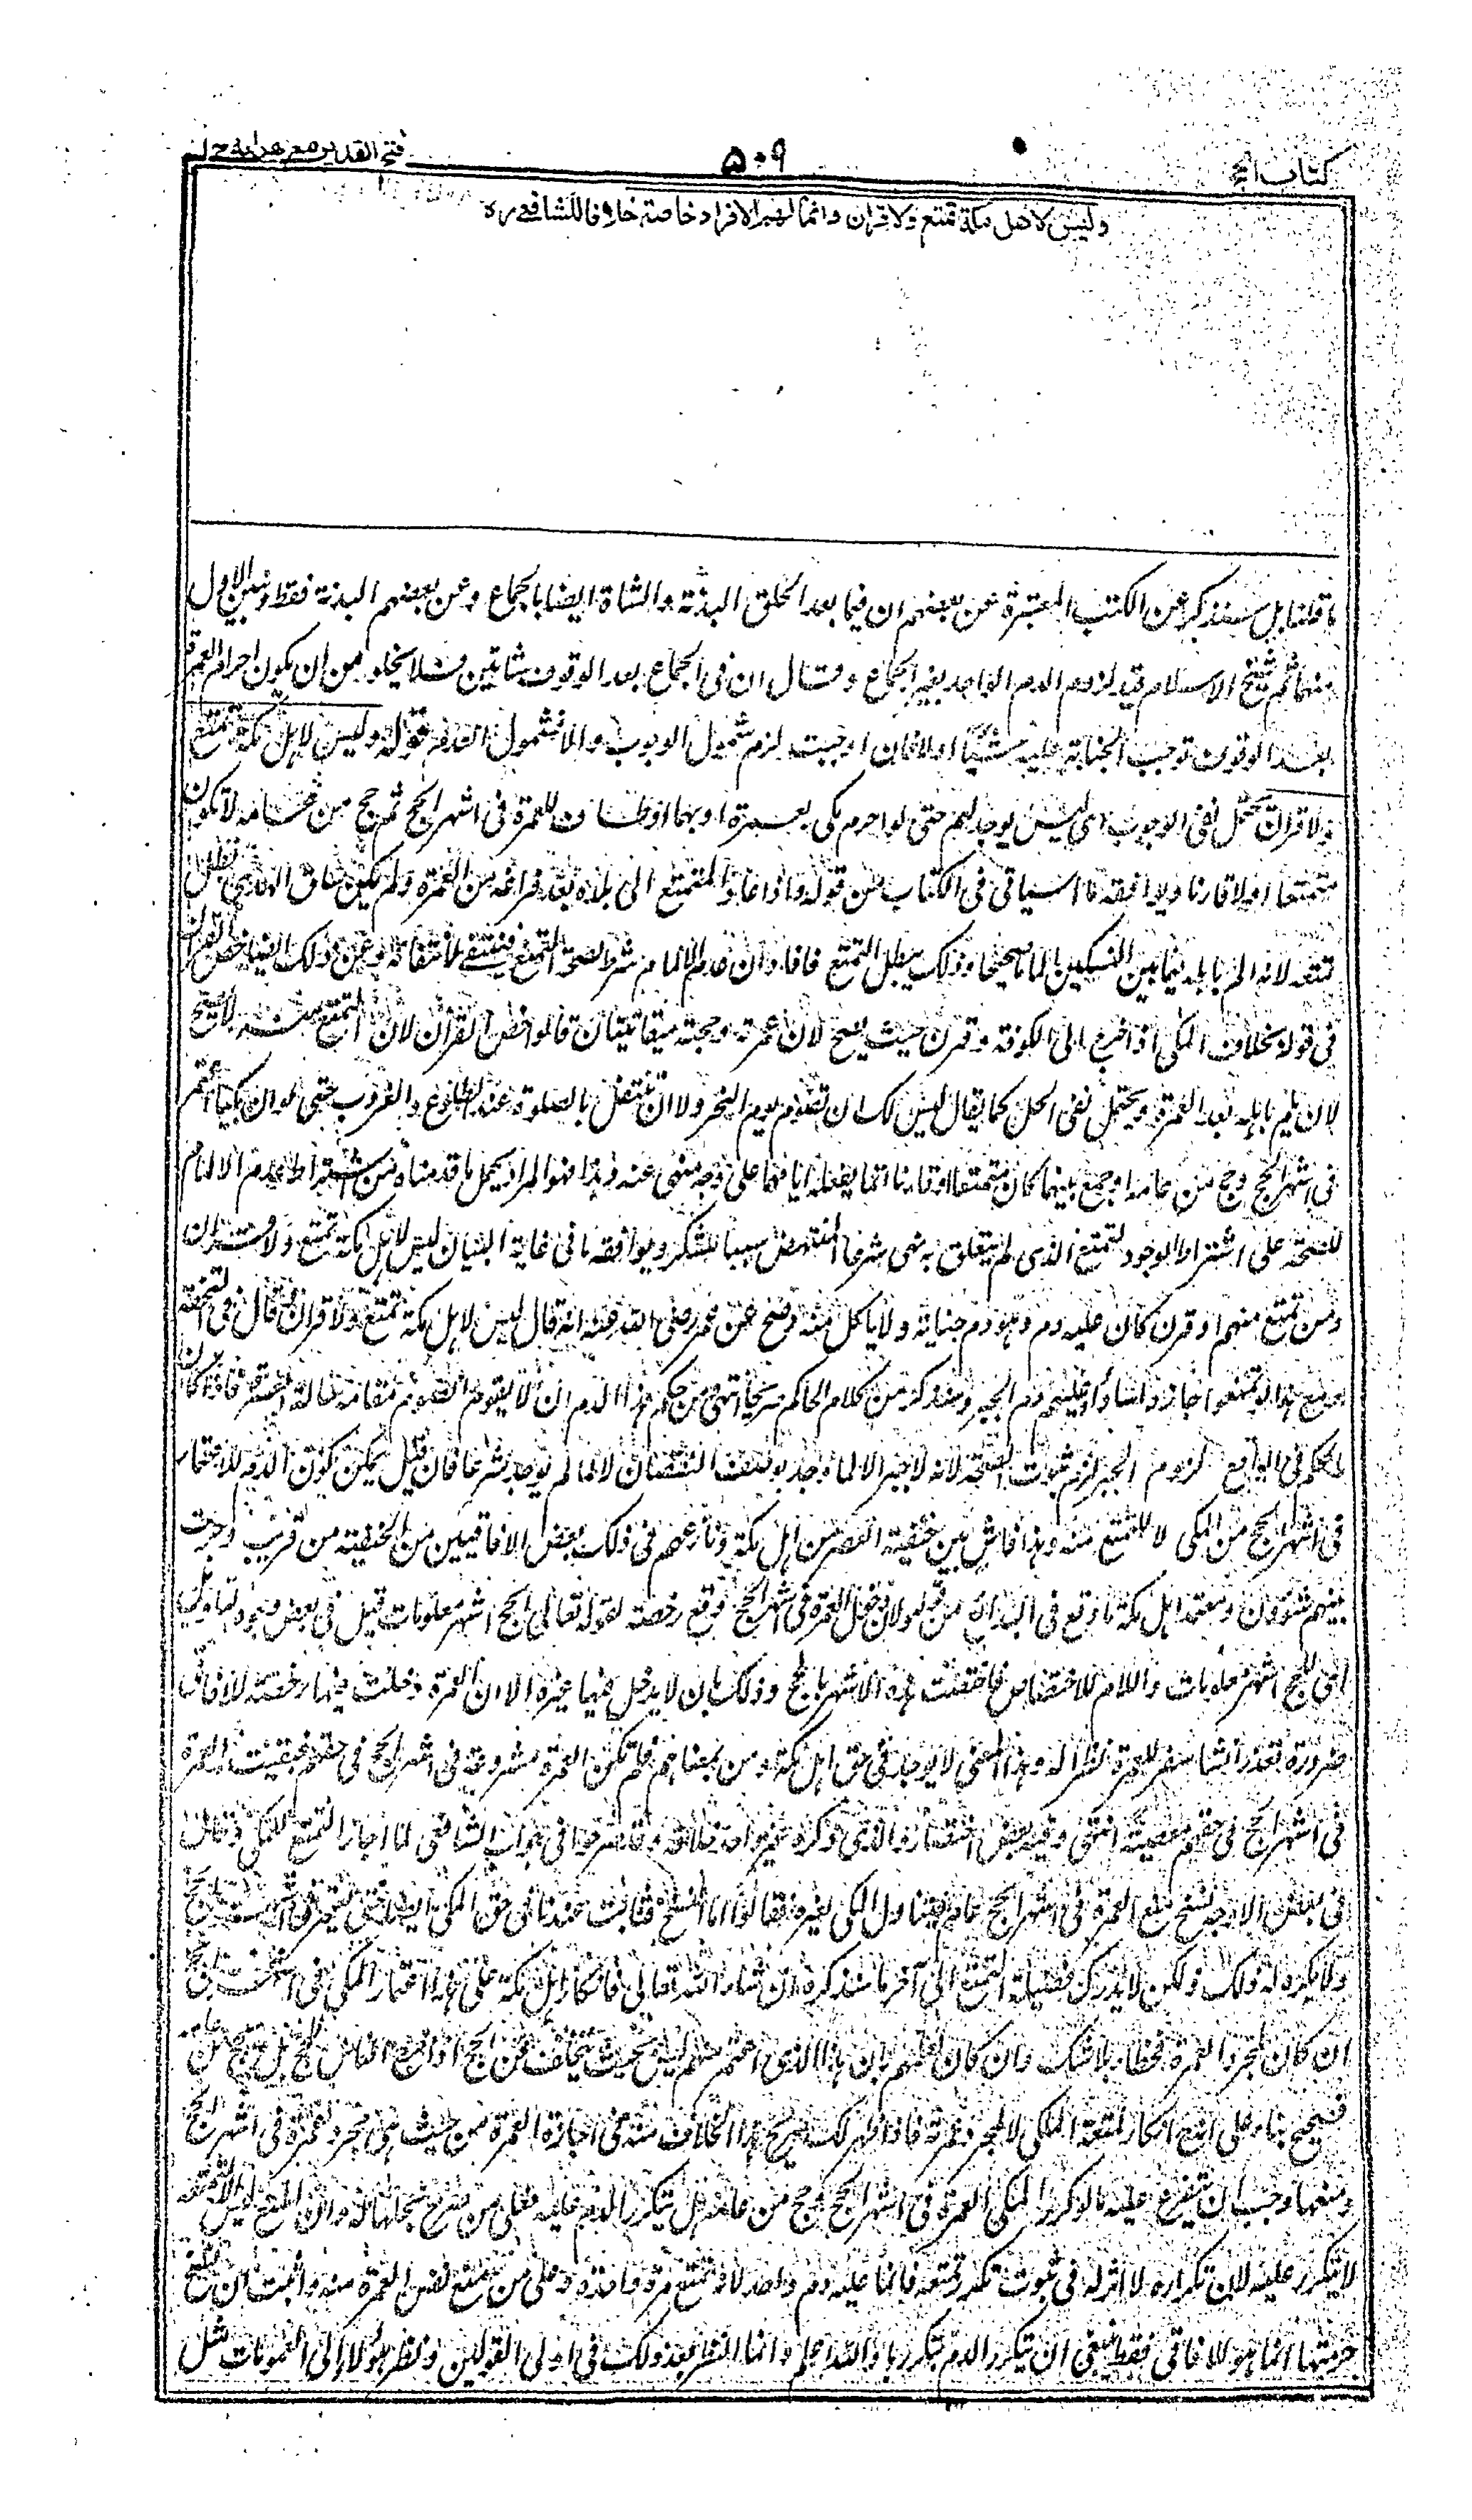 كتاب الحج
۵۰۹
فتح القدير مع هدايه ج
وليس لاهل مكة تمتع ولا قران وانما لهم الافراد خاصة خلافا للشافعي ره
ما قلنا بل سنذكر عن الكتب المعتبرة عن بعضهم ان فيما بعد الحلق البدنة والشاة ايضا بالجماع وعن بعضهم البدنة فقط ونبين الاول
منهما ثم شيخ الاسلام قيد لزوم الدم الواحد بغير الجماع وقال ان في الجماع بعد الوقوف شاتين فلا يخلو من ان يكون احرام العمرة
بعد الوقوف توجب الجناية عليه شيئا اولا فان اوجبت لزم شمول الوجوب والا فشمول العدم قوله وليس لاهل مكة تمتع
ولا قران يحتمل نفى الوجوب اى ليس يوجد لهم حتى لو احرم مكى بعمرة او بهما وطاف للعمرة فى اشهر الحج ثم حج من عامه لا يكون
متمتعا ولا قارنا ويوافقه ما سياتى فى الكتاب من قوله واذا عاد المتمتع الى بلده بعد فراغه من العمرة ولم يكن ساق الهدى بطل
تمتعه لانه الم باهله فيما بين النسكين الماما صحيحا وذلك يبطل التمتع فافاد ان عدم الالمام شرط لصحة التمتع فينتفى لانتفائه وعن ذلك ايضا خص القران
فى قوله بخلاف المكى اذا خرج الى الكوفة وقرن حيث يصح لان عمرته وحجته ميقاتيتان قالوا خص القران لان التمتع منه لا يصح
لانه يلم باهله بعد العمرة ويحتمل نفى الحل كما يقال ليس لك ان تصوم يوم النحر ولا ان تتنفل بالصلوة عند الطلوع والغروب حتى لو ان مكيا اعتمر
فى اشهر الحج وحج من عامه او جمع بينهما كان متمتعا او قارنا اثما بفعله اياهما على وجه منهى عنه وهذا هو المراد بحمل ما قدمناه من اشتراط عدم الالمام
للصحة على اشتراط الوجود التمتع الذى لم يتعلق به نهى شرعا المنتهض سببا للشكر ويوافقه ما فى غاية البيان ليس لاهل مكة تمتع ولا قران
ومن تمتع منهم او قرن كان عليه دم وهو دم جناية ولا ياكل منه وصح عن عمر رضى الله عنه انه قال ليس لاهل مكة تمتع ولا قران وقال فى التحفة
ومع هذا لو تمتعوا جاز واساؤا وعليهم دم الجبر وسنذكر من كلام الحاكم صريحا انتهى ومن حكم هذا الدم ان لا يقوم الصوم مقامه حالة العسر فاذا كان
الحكم فى الواقع لزوم الجبر لزم ثبوت الصحة لانه لا جبر الا لما وجد بوصف النقصان لا لما لم يوجد شرعا فان قيل يمكن كون الدم للاعتمار
فى اشهر الحج من المكى لا للتمتع منه وهذا فاش بين حنفية العصر من اهل مكة ونازعهم فى ذلك بعض الافاقيين من الحنفية من قريب وجرت
بينهم شؤون ومعتمد اهل مكة ما وقع فى البدائع من قوله ولان دخول العمرة فى اشهر الحج وقع رخصة لقوله تعالى الحج اشهر معلومات قيل فى بعض وجوه التاويل
اى للحج اشهر معلومات واللام للاختصاص فاختصت هذه الاشهر بالحج وذلك بان لا يدخل فيها غيره الا ان العمرة دخلت فيها رخصة للافاقى
ضرورة تعذر انشاء سفر للعمرة نظرا له وهذا المعنى لا يوجد فى حق اهل مكة ومن بمعناهم فلم تكن العمرة مشروعة فى اشهر الحج فى حقهم فبقيت العمرة
فى اشهر الحج فى حقهم معصية انتهى وفيه بعض اختصار والذى ذكره غير واحد خلافه وقد صرحوا فى جواب الشافعى لما اجاز التمتع للمكى وقال
فى بعض الاوجه نسخ منع العمرة فى اشهر الحج عام فيتناول المكى كغيره فقالوا اما النسخ فثابت عندنا فى حق المكى ايضا حتى يعتمر فى اشهر الحج
ولا يكره له ذلك ولكن لا يدرك فضيلة التمتع الى آخر ما سنذكره ان شاء الله تعالى فانكار اهل مكة على هذا اعتمار المكى فى اشهر الحج
ان كان لمجرد العمرة فخطا بلا شك وان كان لعلمهم بان هذا الذى اعتمر منهم ليس بحيث يتخلف عن الحج اذا خرج الناس للحج بل يحج من عامه
فصحيح بناء على انه انكار لمتعة المكى لا لمجرد عمرته فاذا ظهر لك صريح هذا الخلاف منه فى اجازة العمرة من حيث هى مجرد عمرة فى اشهر الحج
ومنعها وجب ان يتفرع عليه ما لو كرر المكى العمرة فى اشهر الحج وحج من عامه هل يتكرر الدم عليه فعلى من صرح بحلها له وان المنع ليس الا لتمتعه
لا يتكرر عليه لان تكراره لا اثر له فى ثبوت تكرر تمتعه فانما عليه دم واحد لانه تمتع مرة واحدة وعلى من منع نفس العمرة منه واثبت ان نسخ
حرمتها انما هو للافاقى فقط ينبغى ان يتكرر الدم بتكررها والله اعلم وانما النظر بعد ذلك فى اولى القولين ونظر هؤلاء الى العمومات مثل